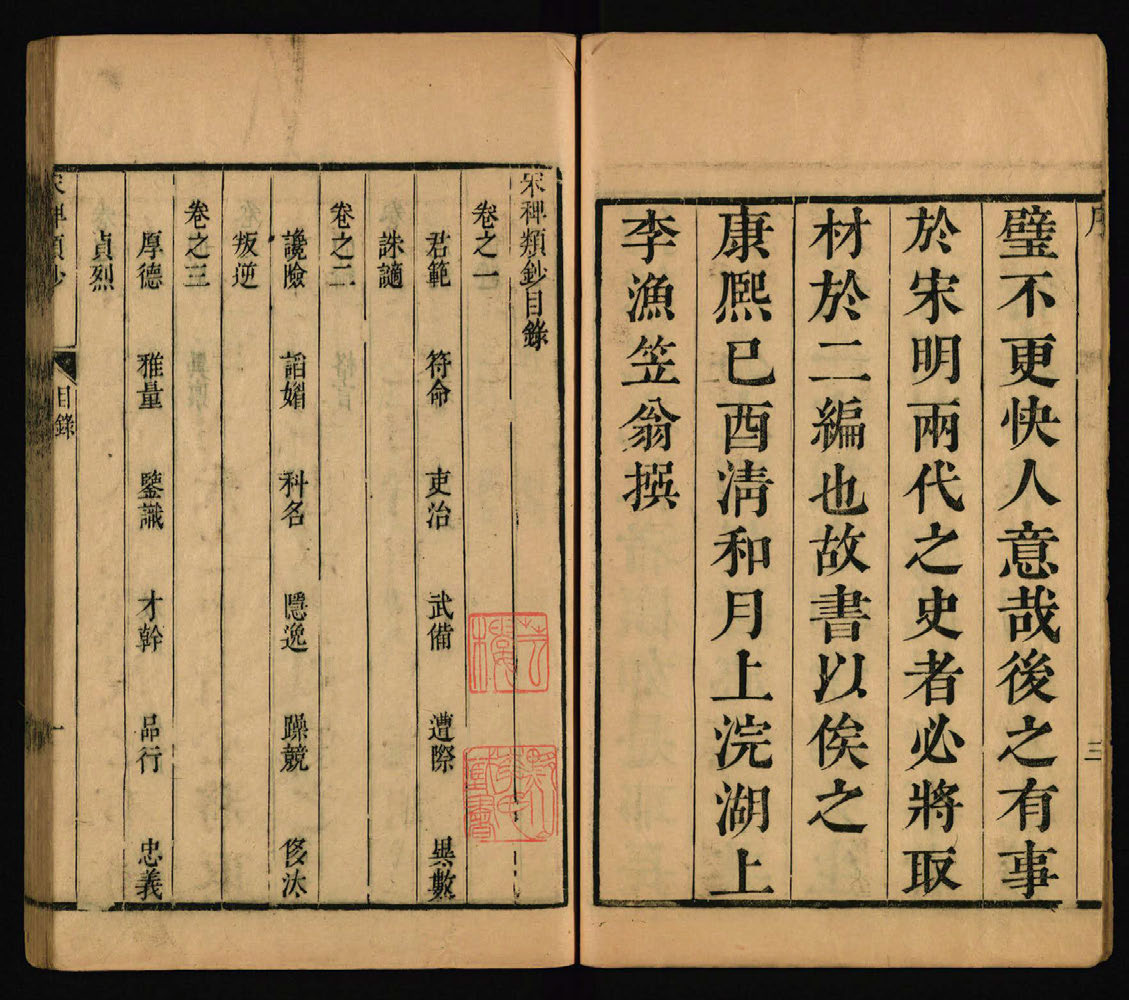 序
三
璧不更快人意哉後之有事
於宋明兩代之史者必將取
材於二編也故書以俟之
康熙己酉清和月上浣湖上
李漁笠翁撰
宋稗類鈔目錄
卷之一
君範 符命 吏治 武備 遭際 異數
誅謫
卷之二
讒險 諂媚 科名 隱逸 躁競 侈汰
叛逆
卷之三
厚德 雅量 鑒識 才幹 品行 忠義
貞烈
宋稗類鈔 目錄 一